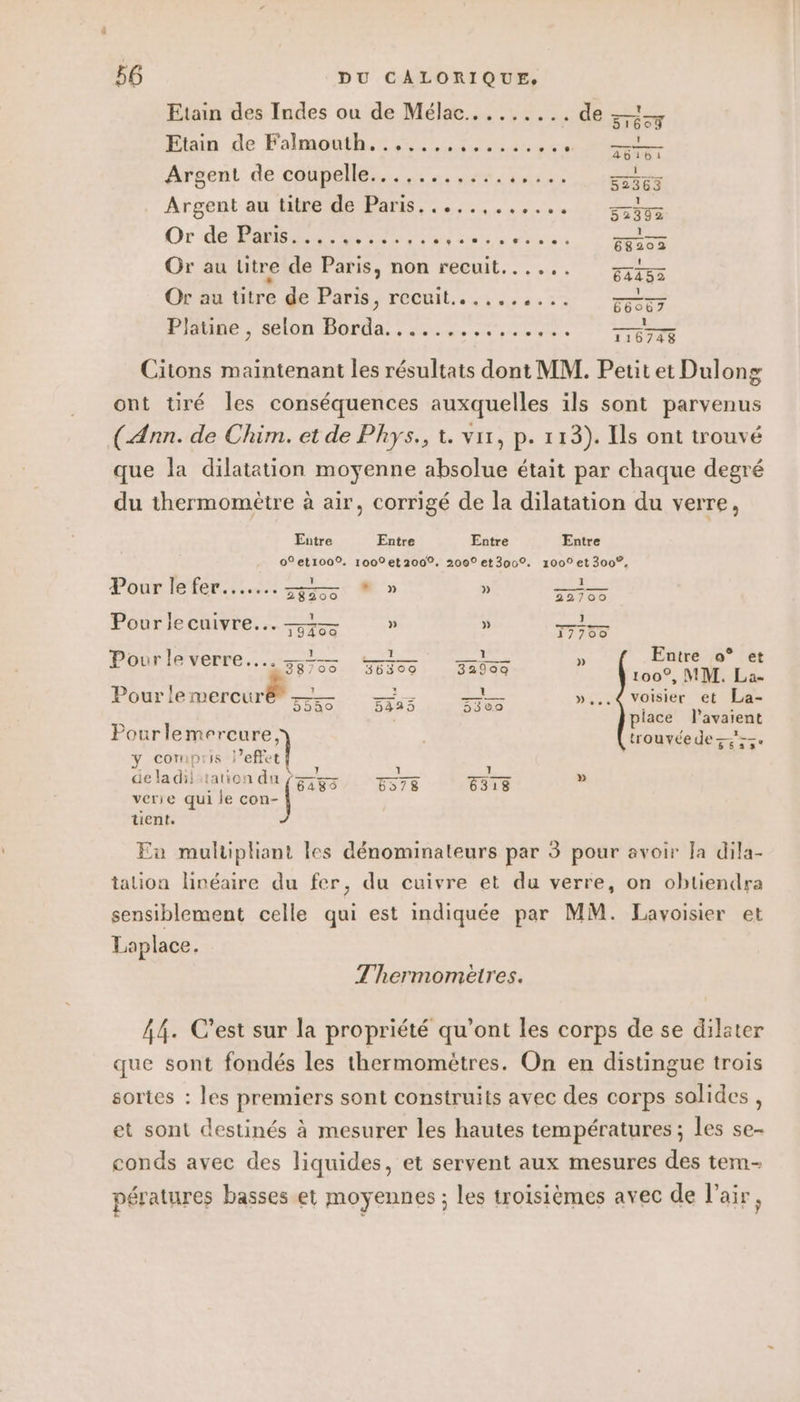 56 DU CALORIQUE,
Etain des Indes ou de Mélac......... de 1/51609
Etain de Falmouth................... 1/46161
Argent de coupelle................. 1/52363
Argent au titre de Paris............ 1/52392
Or de Paris........................ 1/68202
Or au titre de Paris, non recuit...... 1/64452
Or au titre de Paris, recuit......... 1/66067
Platine, selon Borda................ 1/116748
Citons maintenant les résultats dont MM. Petit et Dulong
ont tiré les conséquences auxquelles ils sont parvenus
(Ann. de Chim. et de Phys., t. VII, p. 113). Ils ont trouvé
que la dilatation moyenne absolue était par chaque degré
du thermomètre à air, corrigé de la dilatation du verre,
Entre Entre Entre Entre
0° et 100°. 100° et 200°. 200° et 300°. 100° et 300°.
Pour le fer....... 1/28200 » » 1/22700
Pour le cuivre... 1/19400 » » 1/17700
Pour le verre.... 1/38700 1/36300 1/32900 » Entre 0° et
100°, MM. La-
Pour le mercure 1/5550 1/5425 1/5300 »... voisier et La-
place l'avaient
Pour le mercure, trouvée de
y compris l'effet
de la dilatation du 1/6480 1/6378 1/6318 »
verre qui le con-
tient.
En multipliant les dénominateurs par 3 pour avoir la dila-
tation linéaire du fer, du cuivre et du verre, on obtiendra
sensiblement celle qui est indiquée par MM. Lavoisier et
Laplace.
Thermomètres.
44. C'est sur la propriété qu'ont les corps de se dilater
que sont fondés les thermomètres. On en distingue trois
sortes : les premiers sont construits avec des corps solides,
et sont destinés à mesurer les hautes températures ; les se-
conds avec des liquides, et servent aux mesures des tem-
pératures basses et moyennes ; les troisièmes avec de l'air,